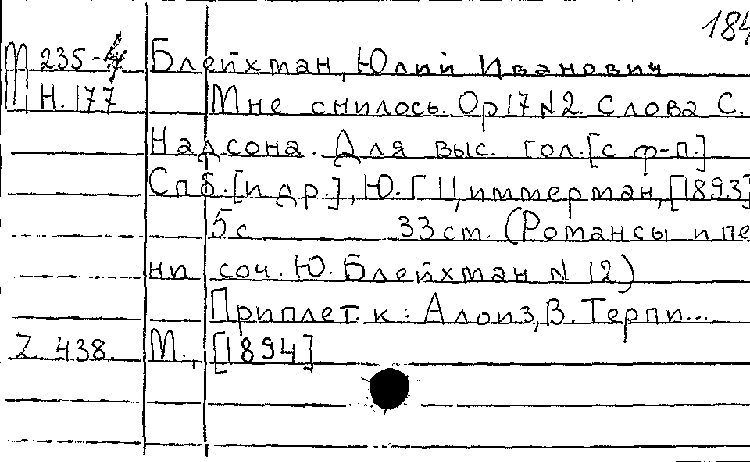 184
М 235-4 Блейхман, Юлий Иванович
Н.177 Мне снилось. Op 17 N2. Слова С.
Надсона. Для выс. гол. [с ф-п.]
Спб. [и др.], Ю. Г Циммерман, [1893]
5с 33 см. (Романсы и пе
ни соч. Ю. Блейхман N 12)
Приплет. к: Алоиз, В. Терпи...
Z 438. М., [1894]